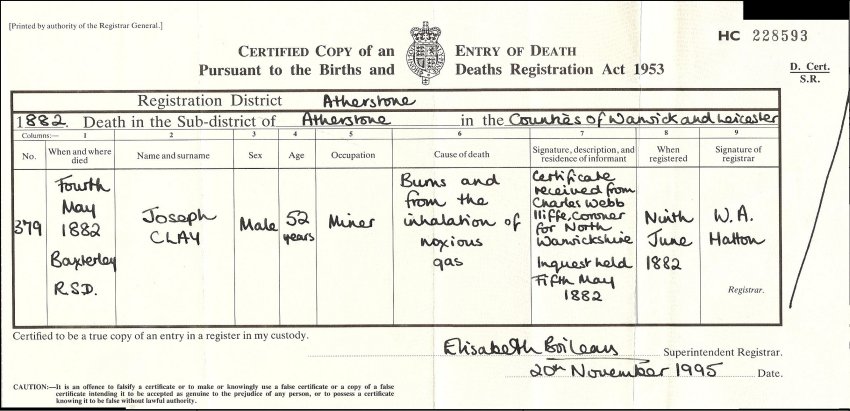 [Printed by authority of the Registrar General.]
HC 228593
CERTIFIED COPY of an ENTRY OF DEATH
Pursuant to the Births and Deaths Registration Act 1953
D. Cert.
S.R.
Registration District Atherstone
1882. Death in the Sub-district of Atherstone in the Counties of Warwick and Leicester
Columns:— 1 2 3 4 5 6 7 8 9
No.
When and where
died
Name and surname
Sex
Age
Occupation
Cause of death
Signature, description, and
residence of informant
When
registered
Signature of
registrar
379
Fourth
May
1882
Baxterley
R.S.D.
Joseph
CLAY
Male
52
years
Miner
Burns and
from the
inhalation of
noxious
gas
Certificate
received from
Charles Webb
Iliffe, Coroner
for North
Warwickshire
Inquest held
Fifth May
1882
Ninth
June
1882
W. A.
Hatton
Registrar.
Certified to be a true copy of an entry in a register in my custody.
Elisabeth Boileau Superintendent Registrar.
20th November 1995 Date.
CAUTION:—It is an offence to falsify a certificate or to make or knowingly use a false certificate or a copy of a false
certificate intending it to be accepted as genuine to the prejudice of any person, or to possess a certificate
knowing it to be false without lawful authority.